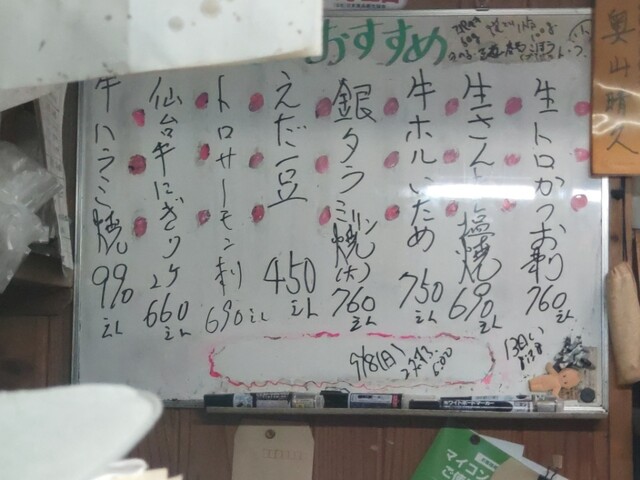 おすすめ
生トロかつお刺 760えん
生さんま塩焼 690えん
牛ホルいため 750えん
銀タラミリン焼(大) 760えん
えだ豆 450えん
トロサーモン刺 690えん
仙台牛にぎり2ケ 660えん
牛ハラミ焼 990えん
9/8(日)
6:00
奥山晴人
ホワイトボードマーカー
マイコン